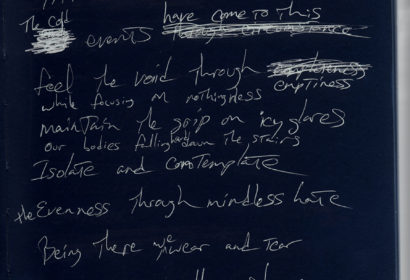 The cold
have come to this
events
feel the void through emptiness
while focusing on nothingness
maintain the grip on icy glares
our bodies falling hard down the stairs
Isolate and Contemplate
the Evenness through mindless hate
Being there we wear and tear